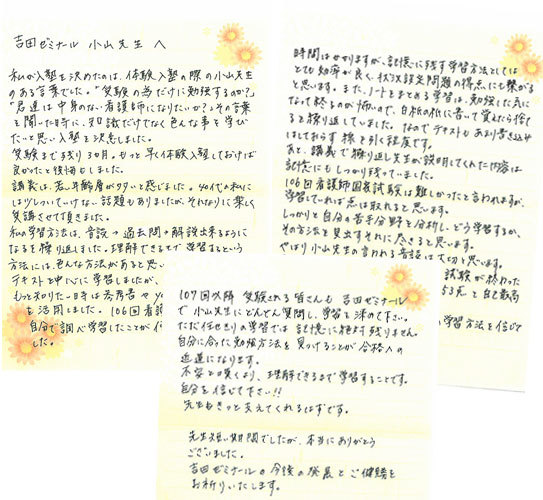 吉田ゼミナール 小山先生へ
私が入塾を決めたのは、体験入塾の際の小山先生
のある言葉でした。"受験の為だけに勉強するのか?"
"君達は中身のない看護師になりたいか?"その言葉
を聞いた時に、知識だけでなく色んな事を学び
たいと思い入塾を決意しました。
受験まで残り3ヵ月。もっと早く体験入塾しておけば
良かったと後悔もしました。
講義は、若い年齢層が多いと感じました。40代の私に
はついていけない話題もありましたが、それなりに楽しく
受講させて頂きました。
私の学習方法は、音読→過去問→解説出来るように
なるを繰り返しました。理解できるまで学習するという
方法には、色んな方法があると思い
テキストを中心に学習しましたが、
もっと知りたい時は参考書や
を活用しました。106回看護
自分で調べ学習したことが
した。
時間はかかりますが、記憶に残す学習方法としては
とても効率が良く、状況設定問題の得点にも繋がる
と思います。また、ノートまとめる学習は、勉強した気に
なって終るのが怖いので、白紙の紙に書いて覚えたら捨てる
を繰り返していました。なのでテキストもあまり書き込み
はしておらず 線を引く程度です。
あと、講義で繰り返し先生が説明してくれた内容は
記憶にもしっかり残っていました。
106回看護師国家試験は難しかったと言われますが、
学習していれば点は取れると思います。
しっかりと自分の苦手分野を分析し、どう学習するか、
その方法を見出すそれに尽きると思います。
やはり小山先生の言われる音読は大切と思います。
試験が終わった
53点と自己最高
学習方法を信じて
107回以降 受験される皆さんも 吉田ゼミナール
で小山先生にどんどん質問し、学習を深めて下さい。
ただ任せきりの学習では 記憶に絶対残りません。
自分に合った勉強方法を見つけることが合格への
近道になります。
不安と嘆くより、理解できるまで学習することです。
自分を信じて下さい!!
先生もきっと支えてくれるはずです。
先生短い期間でしたが、本当にありがとう
ございました。
吉田ゼミナールの今後の発展とご健勝を
お祈りいたします。